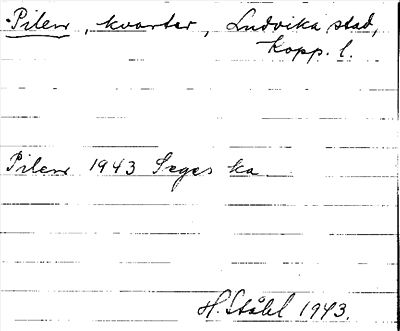 Pilen, kvarter, Ludvika stad,
Kopp. l.
Pilen 1943 Seges ka
H. Ståhl 1943.